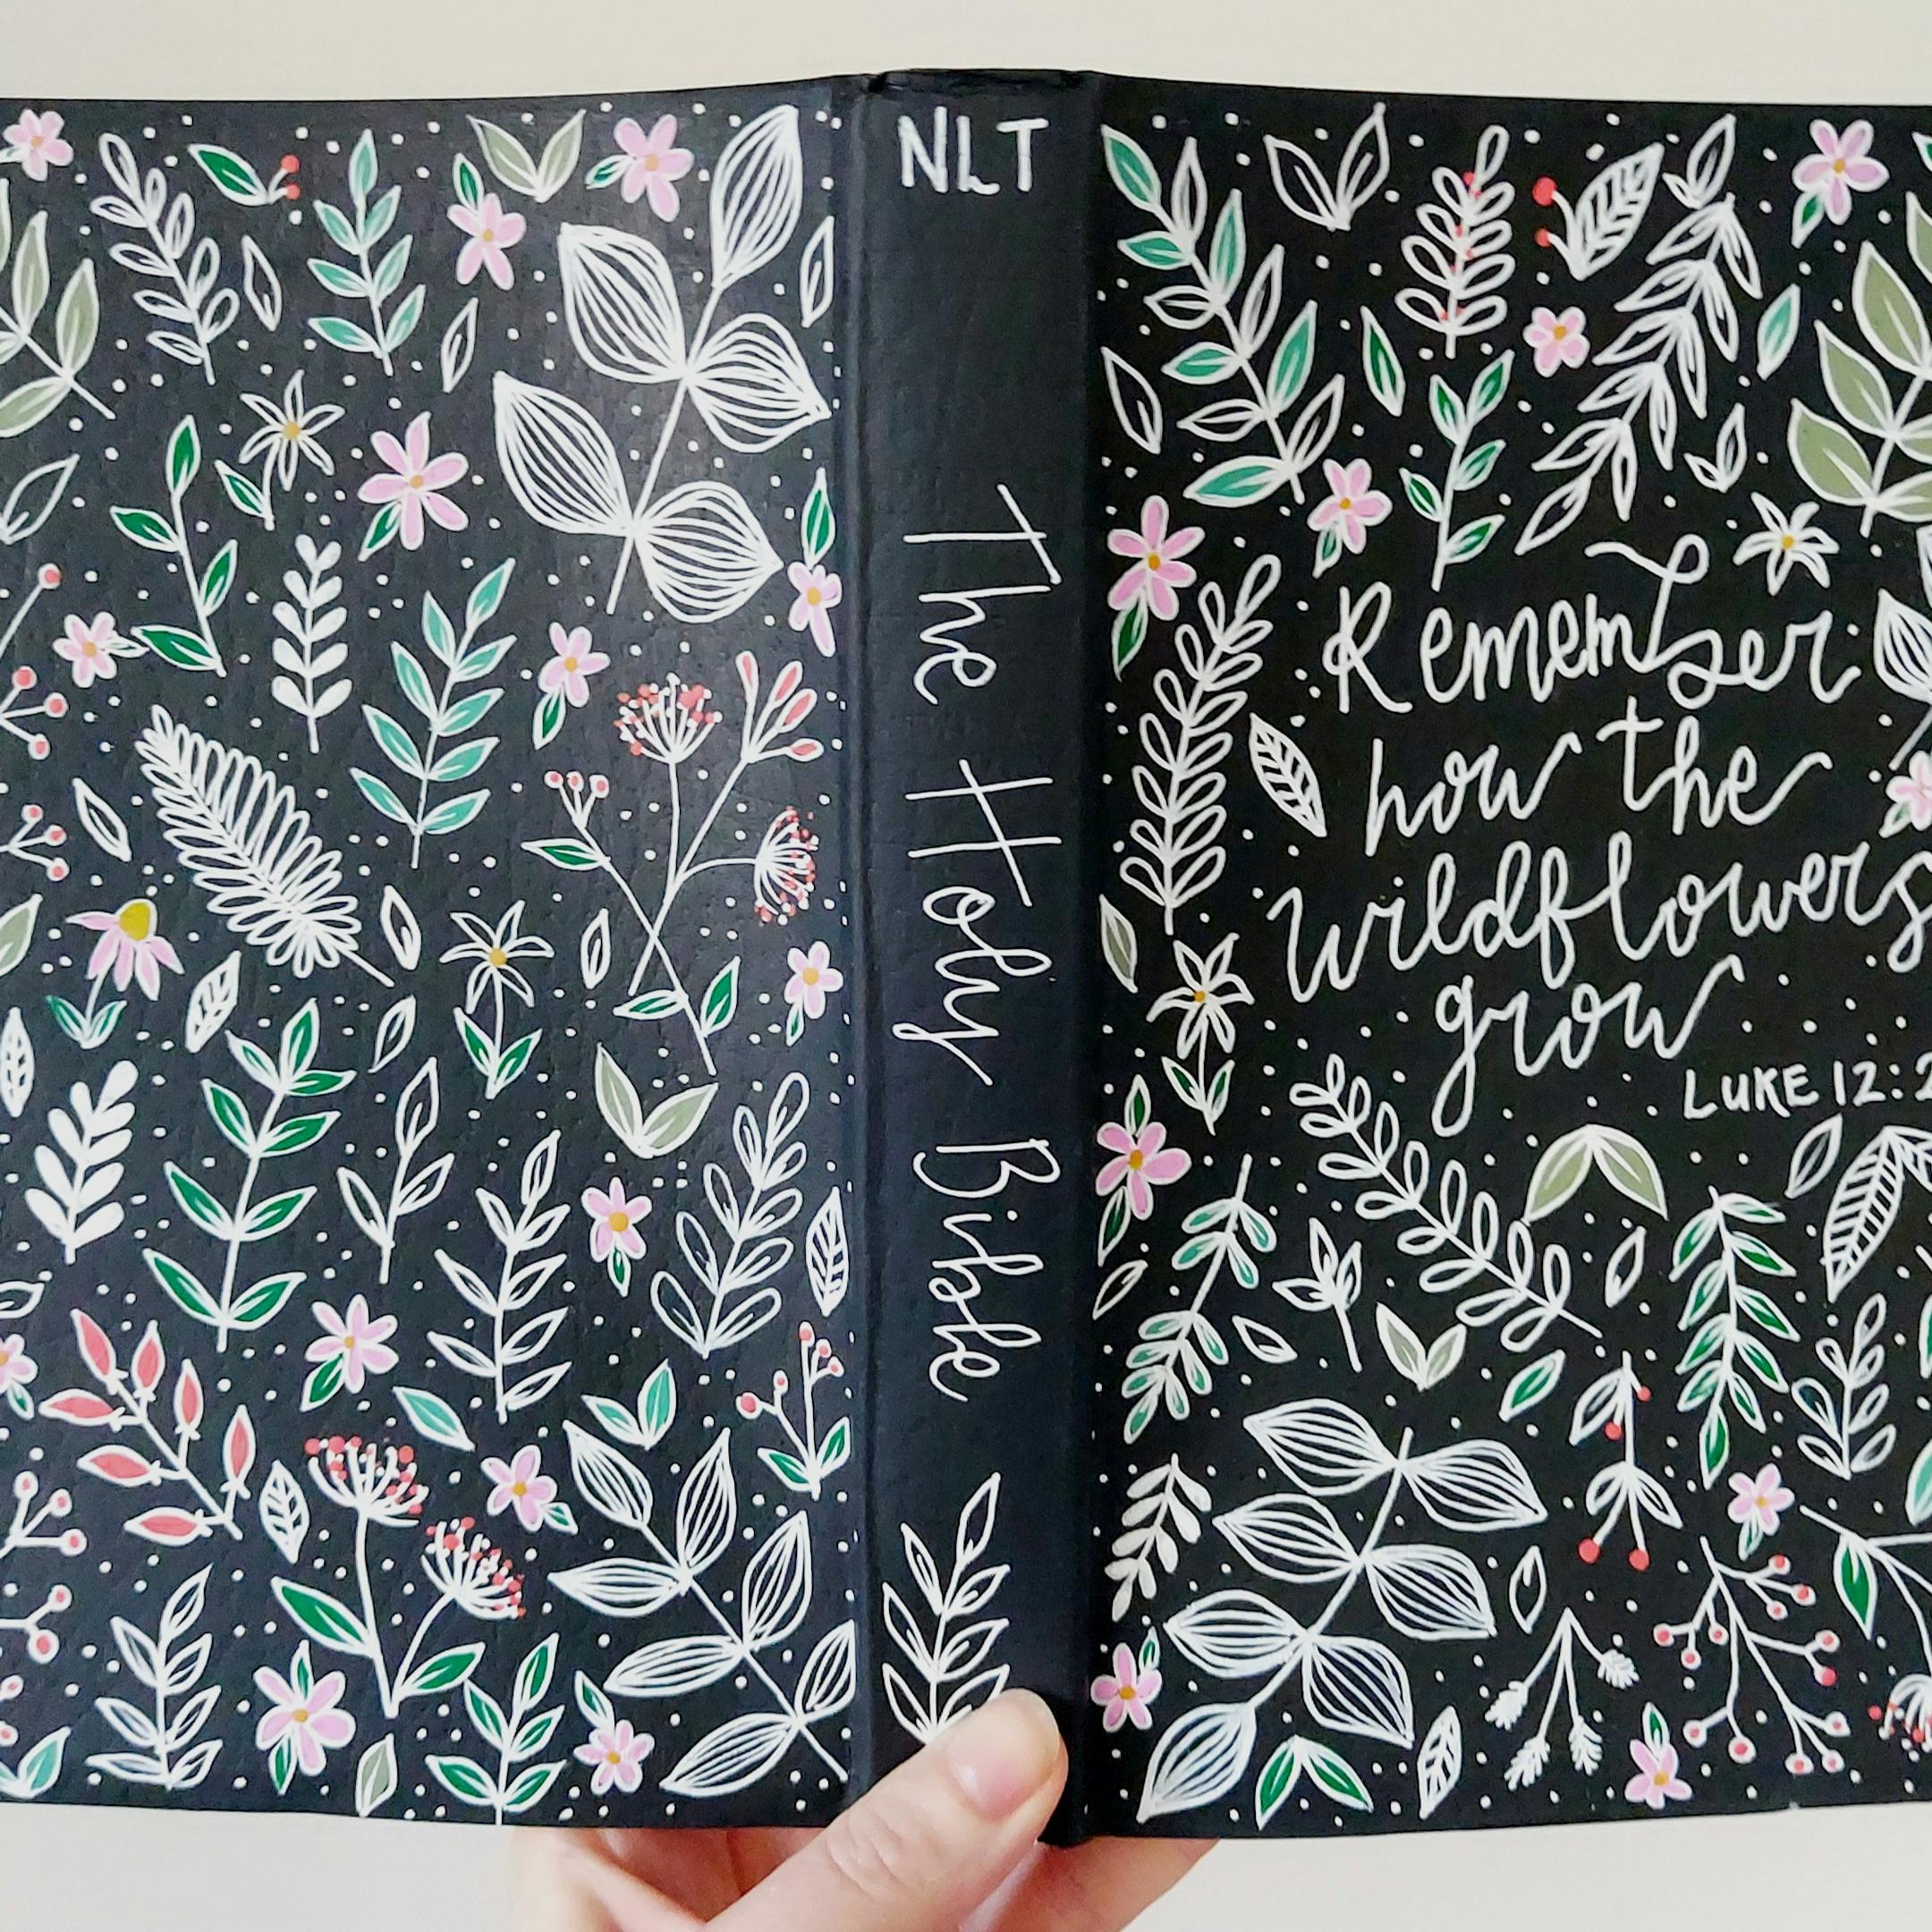 NLT
The Holy Bible
Remember
how the
wildflowers
grow
LUKE 12:2